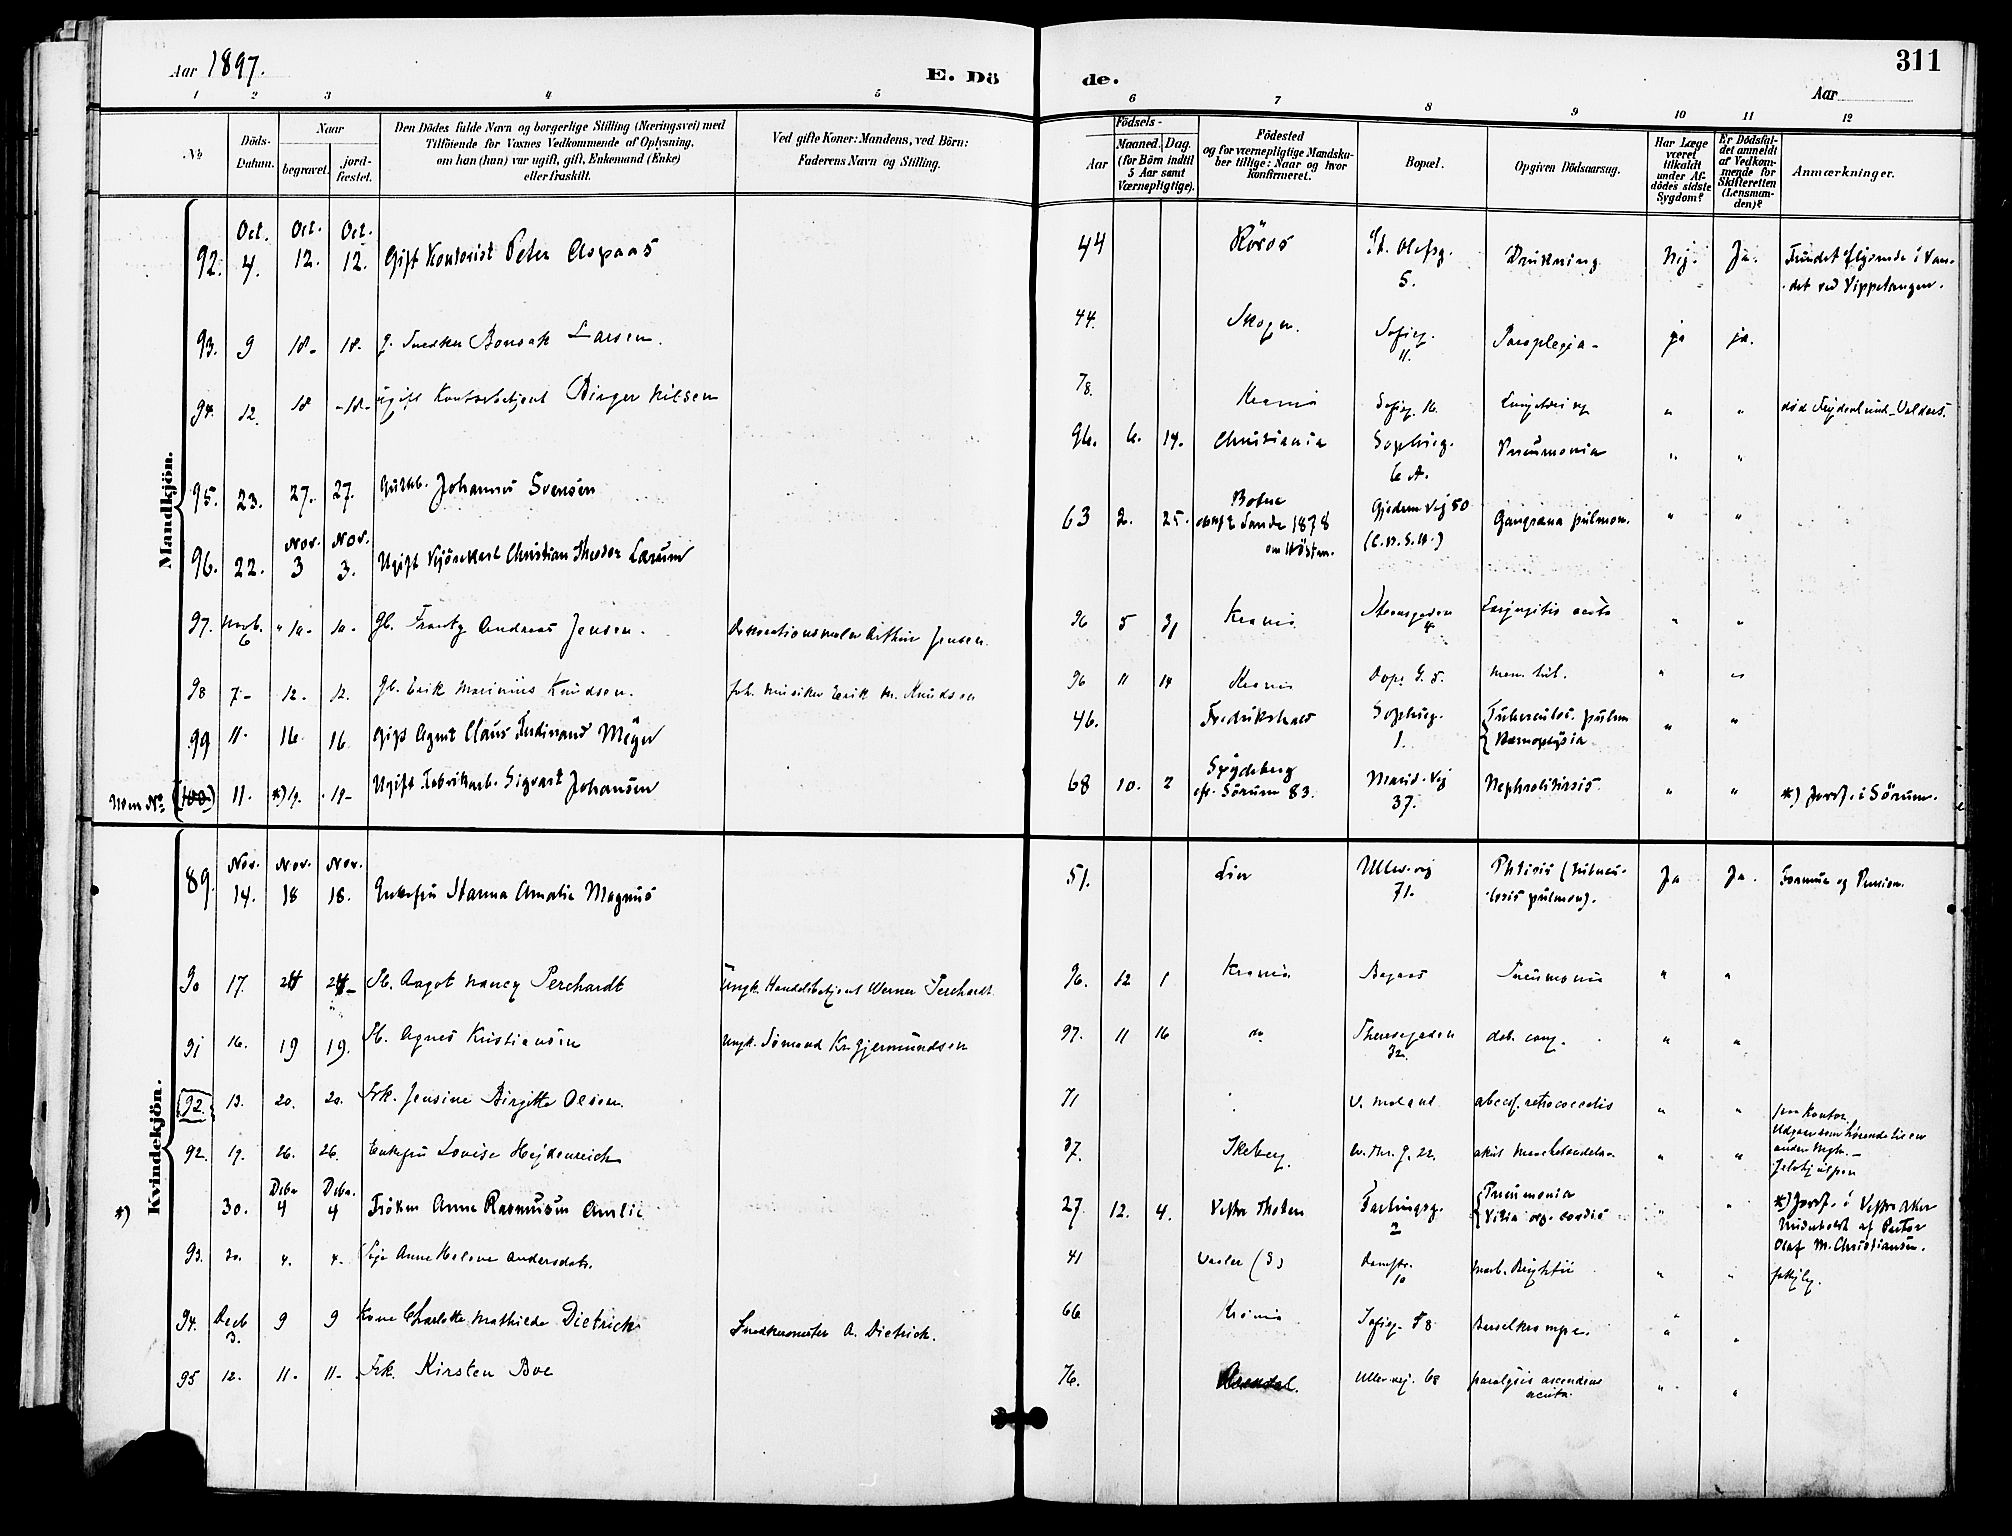 Aar 1897.
E. Dö de.
311
Aar
1 2 3 4 5 6 7 8 9 10 11 12
No
Döds-Datum.
Naar
begravet.
jord-fæstet.
Den Dödes fulde Navn og borgerlige Stilling (Næringsvei) med
Tilföiende for Voxnes Vedkommende af Oplysning,
om han (hun) var ugift, gift, Enkemand (Enke)
eller fraskilt.
Ved gifte Koner: Mandens, ved Börn:
Faderens Navn og Stilling.
Födsels-
Aar
Maaned. Dag.
(for Börn indtil
5 Aar samt
Værnepligtige).
Födested
og for værnepligtige Mandska-
ber tillige: Naar og hvor
konfirmeret.
Bopæl.
Opgiven Dödsaarsag.
Har Læge
været
tilkaldt
under Af-
dödes sidste
Sygdom?
Er Dödsfal-
det anmeldt
af Vedkom-
mende for
Skifteretten
(Lensman-
den)?
Anmærkninger.
Mandkjön.
92. Oct. 4. Oct. 12. Oct. 12. Gift Kontorist Peter Aspaas 44 Röros St. Olafsg. 5. Drukning Nej. Ja. Fundet flydende i Van-
det ved Vippetangen.
93. 9 18- 18- g. Snedker Bonsak Larsen. 44. Skoger. Sofieg. 11. Paraplegia- ja ja.
94. 12. 18 -18- ugift Kontorbetjent Birger Nilsen 78. Krania Sofieg. 16. " " död Frydenlund - Valders.
95. 23. 27. 27. Johannes Svensen 96. 6. 14. Christiania Sophieg. 6 A. Pneumonia " "
96. 22. Nov. 3 Nov. 3. Ugift Kjörekarl Christian Theodor Lærum 63 2. 25. Botne
Sande 1878
om Hösten. Gjedem vej 50 Gangræna pulmon. " "
97. Novb. 6 " 10- 10- Gb. Frantz Andreas Jensen. Dekorationsmaler Arthur Jensen 96 5 31 Krania Stensgaden 4 Laryngitis acuta " "
98 7- 12- 12. Gb. Erik Marinius Knudsen. Fh. Musiker Erik M. Knudsen 96 11 14 Krania Dops G. 5. men. tub. " "
99 11. 16. 16. Gift Agent Claus Ferdinand Meyer 46. Fredrikshald Sophieg. 1. Tubercules. pulm
Hæmoptysia " "
Uden No (100) 11. *) 19. 19- Ugift Fabrikarb. Sigvart Johansen 68 10. 2 Spydeberg
cfr. Sörum 83. Marid. Vej 37. Nephrolithiasis " " *) Jordf. i Sörum.
Kvindekjön.
89. Nov. 14. Nov. 18 Nov. 18. Enkefru Hanna Amalie Magnus 51. Lier Ullev. vej 71. Phtisis (tubercu-
losis pulmon). Ja Ja. Formue og Pension.
90 17. 24 24- Pb. Aagot Nancy Perchardt Ungk. Handelsbetjent Werner Perchardt 96. 12 1 Krania Bagaas Pneumonia " "
91 16. 19 19. Pb. Agnes Kristiansen Ungk. Sömand Kr. Gjermundsen 97. 11 16 do Theresegaden 32. deb. cong. " "
[92.] 13. 20. 20. Frk. Jensine Birgitte Olsen. 71 V. Moland " "
92. 19. 26. 26. Enkefru Lovise Hejdenreich 37. Skeberg. 22. " "
*) 30. Debr 4 Debr. 4 Fröken Anne Rasmussen Amlie 27. 12. 4. Vestre Thoten Fastingsg. 2 Pneumonia
Vitia org. cordis " " *) Jordf. i Vestre Aker
af Pastor
Olaf M. Christiansen.
93. 30. 4. 4- Pige Anne Helene Andersdatr. 41 Vaaler (S) 10 morb. Brightii " "
94. Decb 3. 9 9 Kone Charlotte Mathilde Dietrich Snedkermester A. Dietrich. 66 Krania Sofieg. 58 " "
95 12. 11- 11- Frk. Kirsten Boe 76. Arendal. Ullev. vej. 68 paralysis ascendens
acuta. " "